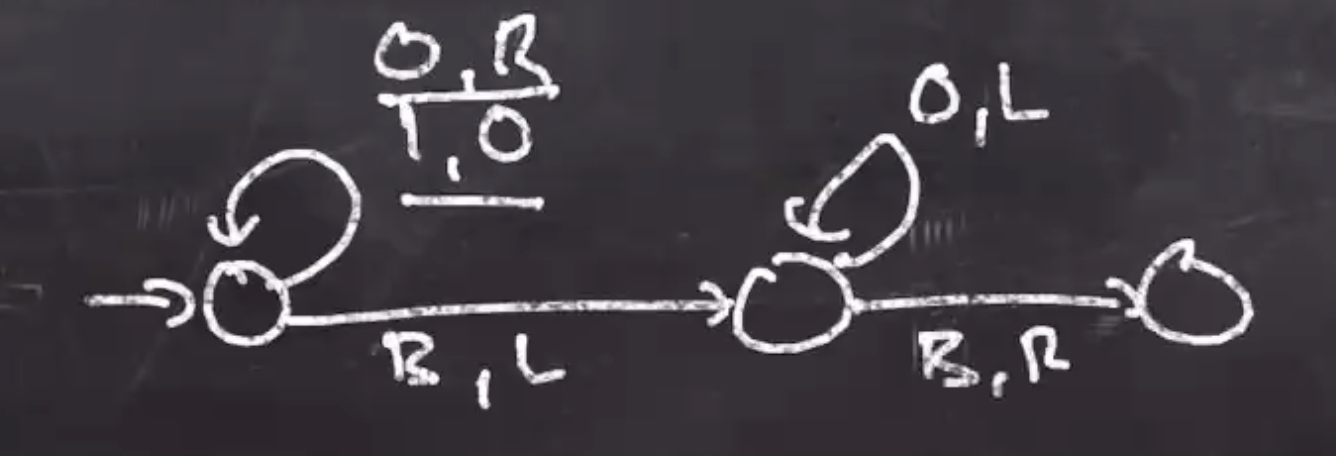 0,R
1,0
0,L
B,L
B,R